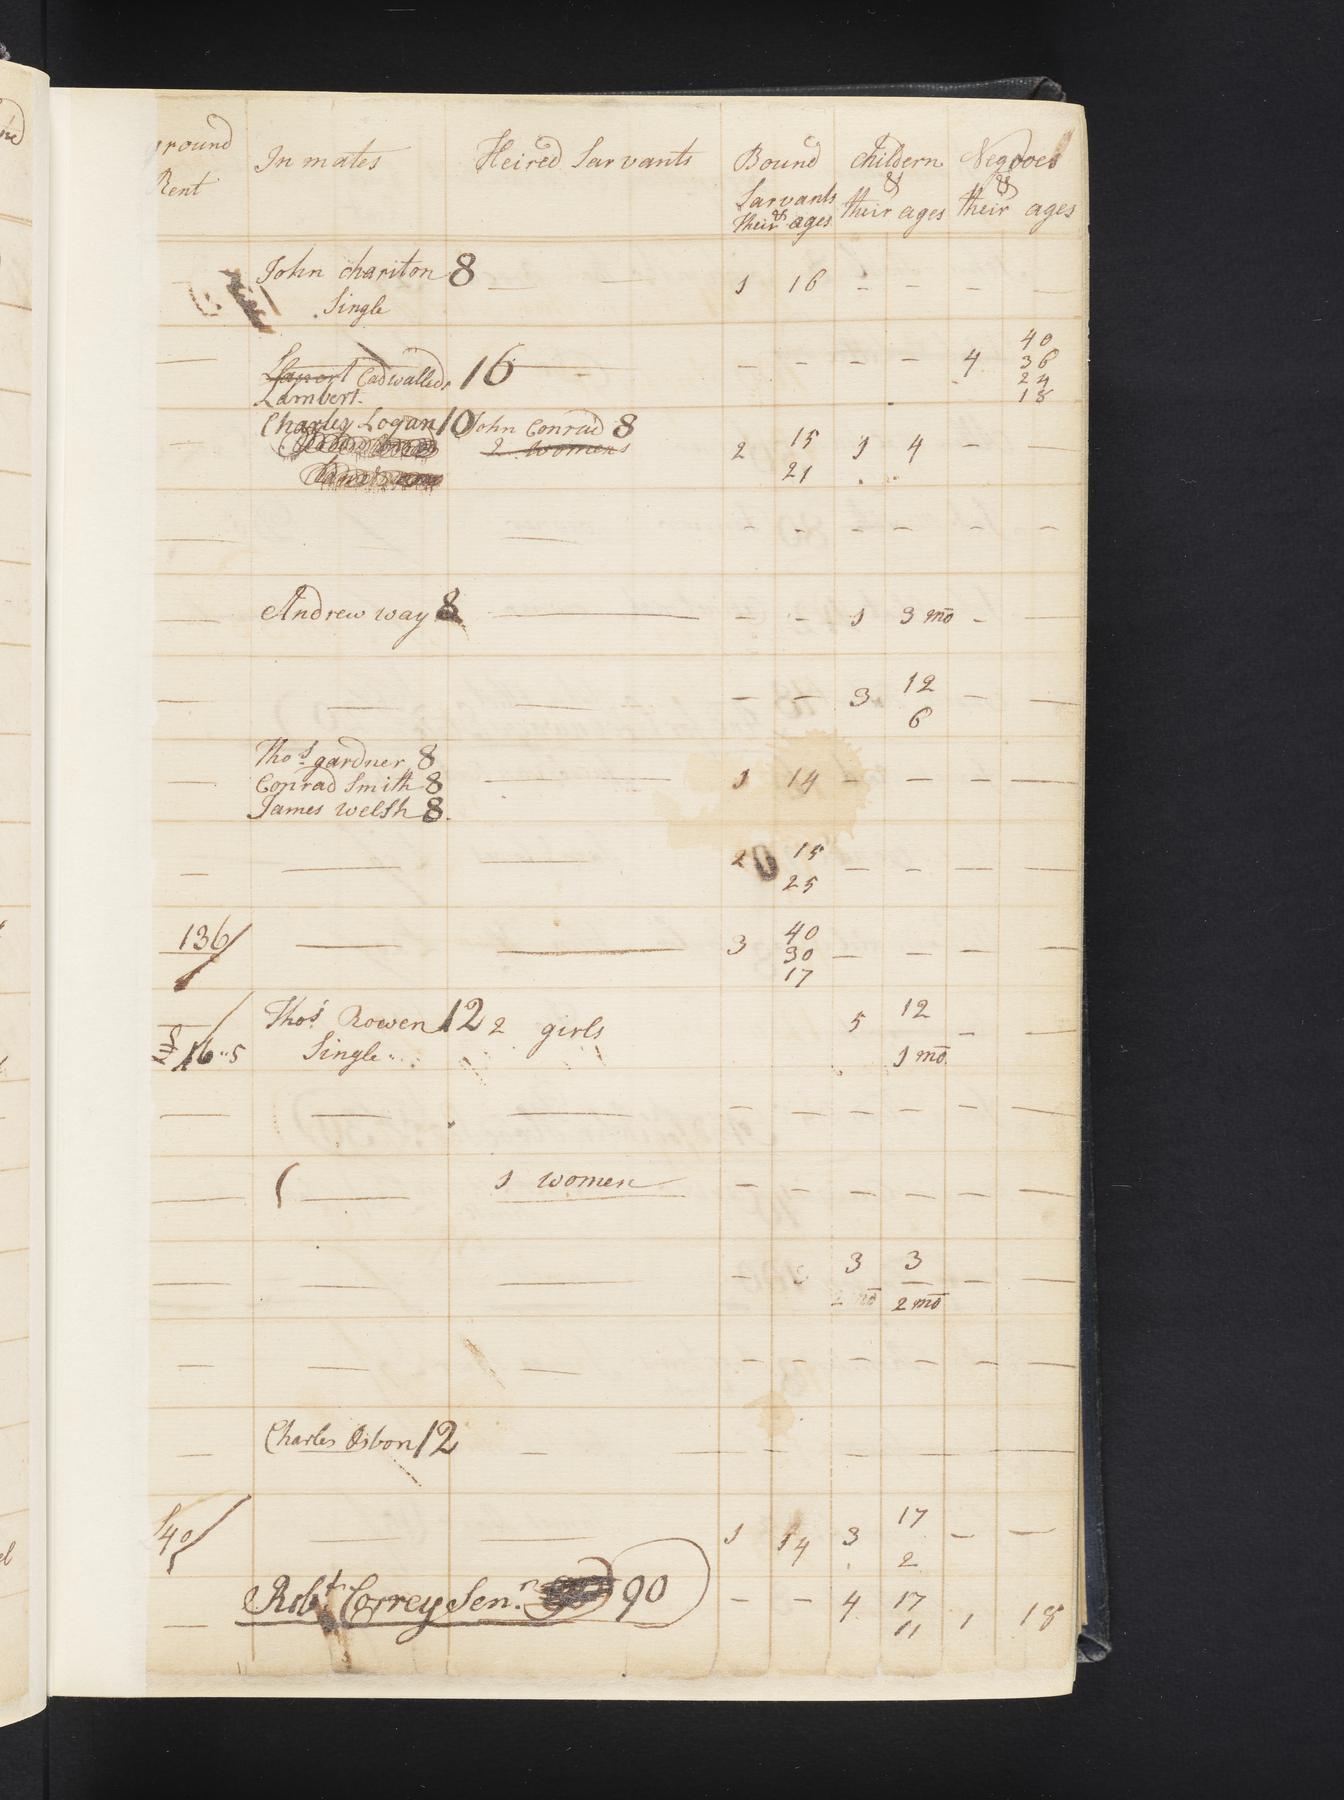 ground Rent In mates Heired Sarvants Bound Sarvants & Their ages childern & their ages Negroes & their ages
— John chariton 8 — — 1 16 - - - —
Single
— Cadwalleder 16 — - - - - 4 40
Lambert. 36
24
18
- Charley Logan 10 John Conrad 8 2 15 1 4 - —
2 womens 21
— — - - - - - -
— Andrew way 8 — - - 1 3 mo - —
— — — - - 3 12 - —
6
Thos gardner 8
— Conrad Smith 8 — 1 14 - - - —
James Welsh 8.
— — — 2 15 - - - —
25
136/ — — 3 40 - - - —
30
17
Thos Rowen 12 2 girls 5 12 - —
16"5 Single 1 mo
— — — - - - - - —
— — 1 women - - - - - —
— — — - 3 3 - —
2 mo 2 mo
— — — - - - - - —
— Charles Osbon 12 — - - - - - —
40/ — — 1 14 3 17 - —
2
— Robt Correy Senr 90 - - 4 17 1 18
11